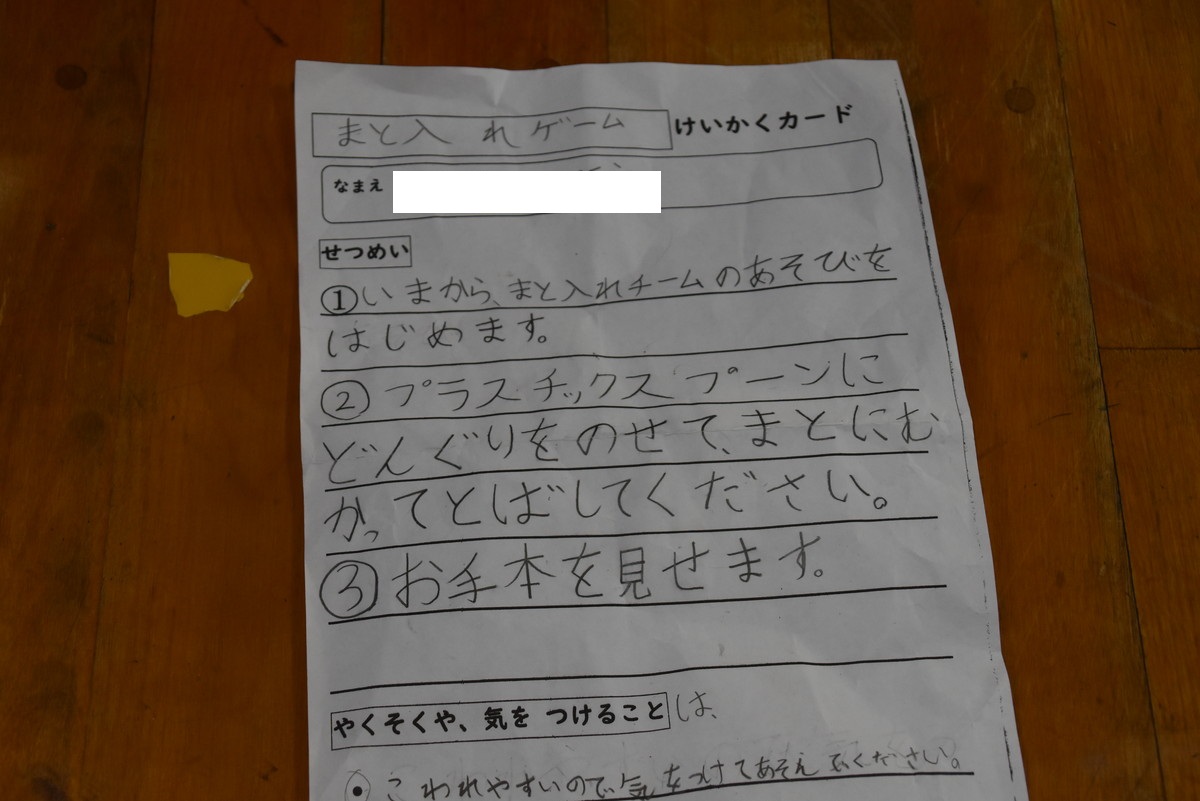 まと入れゲーム けいかくカード
なまえ
せつめい
①いまから、まと入れチームのあそびを
はじめます。
②プラスチックスプーンに
どんぐりをのせて、まとにむ
かってとばしてください。
③お手本を見せます。
やくそくや、気を つけること は、
・こわれやすいので気をつけてあそんでください。